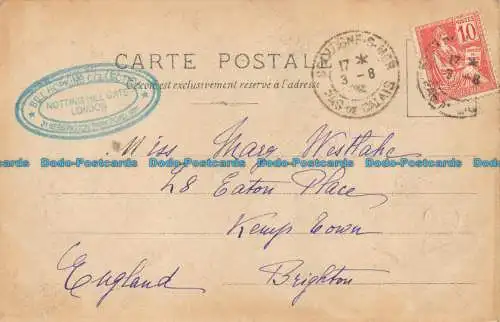 CARTE POSTALE
Ce côté est exclusivement réservé à l'adresse
BOULOGNE-S-MER
17 *
3 - 8
02
PAS DE CALAIS
10
NOTTING HILL GATE
LONDON
Miss Mary Westlake
28 Eaton Place
Kemp Town
Brighton
England
Dodo-Postcards Dodo-Postcards Dodo-Postcards Dodo-Postcards